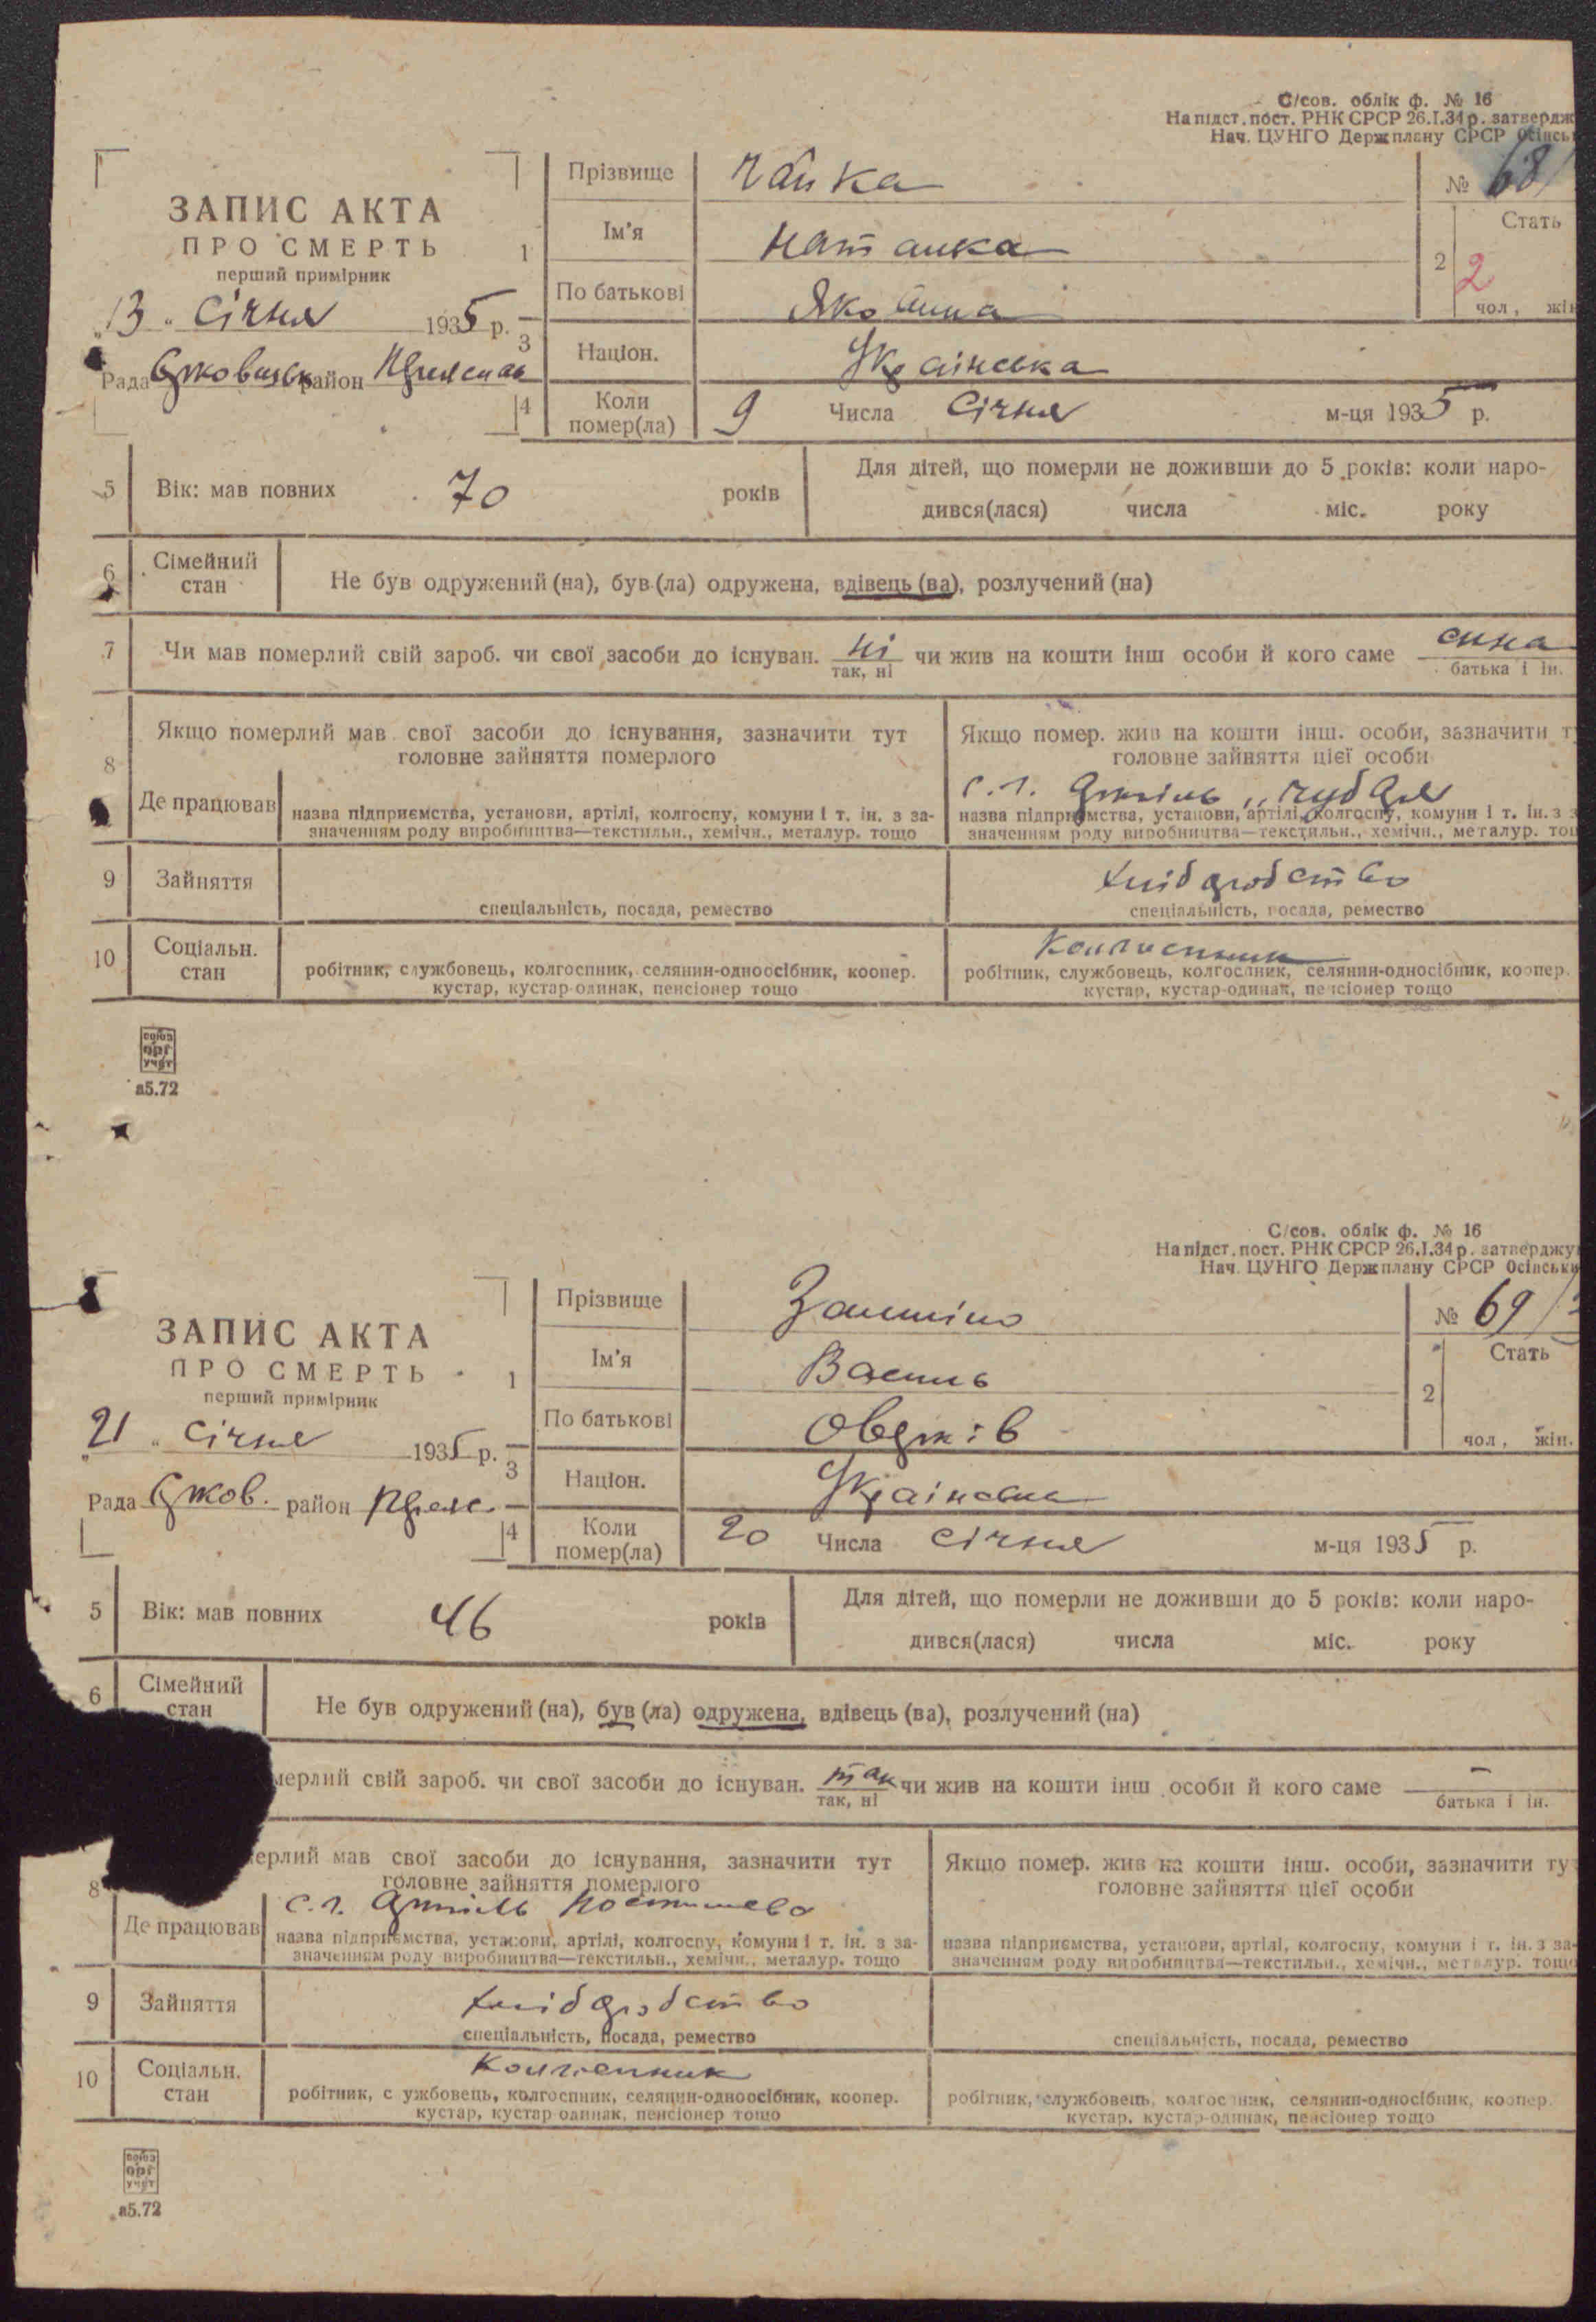 С/сов. облік ф. № 16
На підст. пост. РНК СРСР 26.I.34 р. затвердж
Нач. ЦУНГО Держплану СРСР Осінськ
ЗАПИС АКТА
ПРО СМЕРТЬ
перший примірник
"13" січня 1935 р.
Рада район
1
Прізвище Чайка
Ім'я
По батькові
№ 68/
2 Стать
2
чол, жін
3 Націон. Українська
4 Коли помер(ла) 9 Числа Січня м-ця 1935 р.
5 Вік: мав повних 70 років
Для дітей, що померли не доживши до 5 років: коли наро-
дився(лася) числа міс. року
6 Сімейний стан Не був одружений (на), був (ла) одружена, вдівець (ва), розлучений (на)
7 Чи мав померлий свій зароб. чи свої засоби до існуван. ні чи жив на кошти інш особи й кого саме сина
так, ні батька і ін.
8 Якщо померлий мав свої засоби до існування, зазначити тут
головне зайняття померлого
Якщо помер. жив на кошти інш. особи, зазначити т
головне зайняття цієї особи
Де працював
назва підприємства, установи, артілі, колгоспу, комуни і т. ін. з за-
значенням роду виробництва—текстильн., хемічн., металур. тощо
с.г. Артіль
назва підприємства, установи, артілі, колгоспу, комуни і т. ін. з з
значенням роду виробництва—текстильн., хемічн., металур. тощ
9 Зайняття
спеціальність, посада, ремество
хліборобство
спеціальність, посада, ремество
10 Соціальн. стан
робітник, службовець, колгоспник, селянин-одноосібник, коопер.
кустар, кустар-одинак, пенсіонер тощо
Колгоспник
робітник, службовець, колгоспник, селянин-односібник, коопер.
кустар, кустар-одинак, пенсіонер тощо
союз
орг
учёт
а5.72
С/сов. облік ф. № 16
На підст. пост. РНК СРСР 26.I.34 р. затверджу
Нач. ЦУНГО Держплану СРСР Осінськи
ЗАПИС АКТА
ПРО СМЕРТЬ
перший примірник
"21" січня 1935 р.
Рада район
1
Прізвище
Ім'я Василь
По батькові
№ 69/
2 Стать
чол, жін.
3 Націон. Українська
4 Коли помер(ла) 20 Числа січня м-ця 1935 р.
5 Вік: мав повних 46 років
Для дітей, що померли не доживши до 5 років: коли наро-
дився(лася) числа міс. року
6 Сімейний стан Не був одружений (на), був (ла) одружена, вдівець (ва), розлучений (на)
мерлий свій зароб. чи свої засоби до існуван. так чи жив на кошти інш особи й кого саме –
так, ні батька і ін.
8 ерлий мав свої засоби до існування, зазначити тут
головне зайняття померлого
Якщо помер. жив на кошти інш. особи, зазначити ту
головне зайняття цієї особи
Де працював
с.г. Артіль Постишева
назва підприємства, установи, артілі, колгоспу, комуни і т. ін. з за-
значенням роду виробництва—текстильн., хемічн., металур. тощо
назва підприємства, установи, артілі, колгоспу, комуни і т. ін. з за-
значенням роду виробництва—текстильн., хемічн., металур. тощо
9 Зайняття
хліборобство
спеціальність, посада, ремество
спеціальність, посада, ремество
10 Соціальн. стан
Колгоспник
робітник, с ужбовець, колгоспник, селянин-одноосібник, коопер.
кустар, кустар-одинак, пенсіонер тощо
робітник, службовець, колгоспник, селянин-односібник, коопер.
кустар, кустар-одинак, пенсіонер тощо
союз
орг
учёт
а5.72